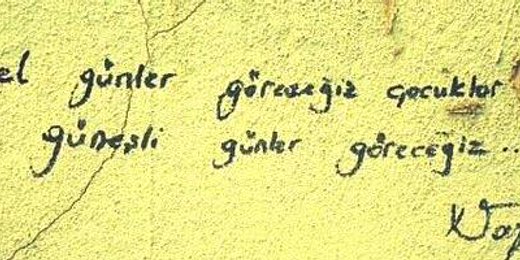 el günler göreceğiz çocuklar
güneşli günler göreceğiz ..